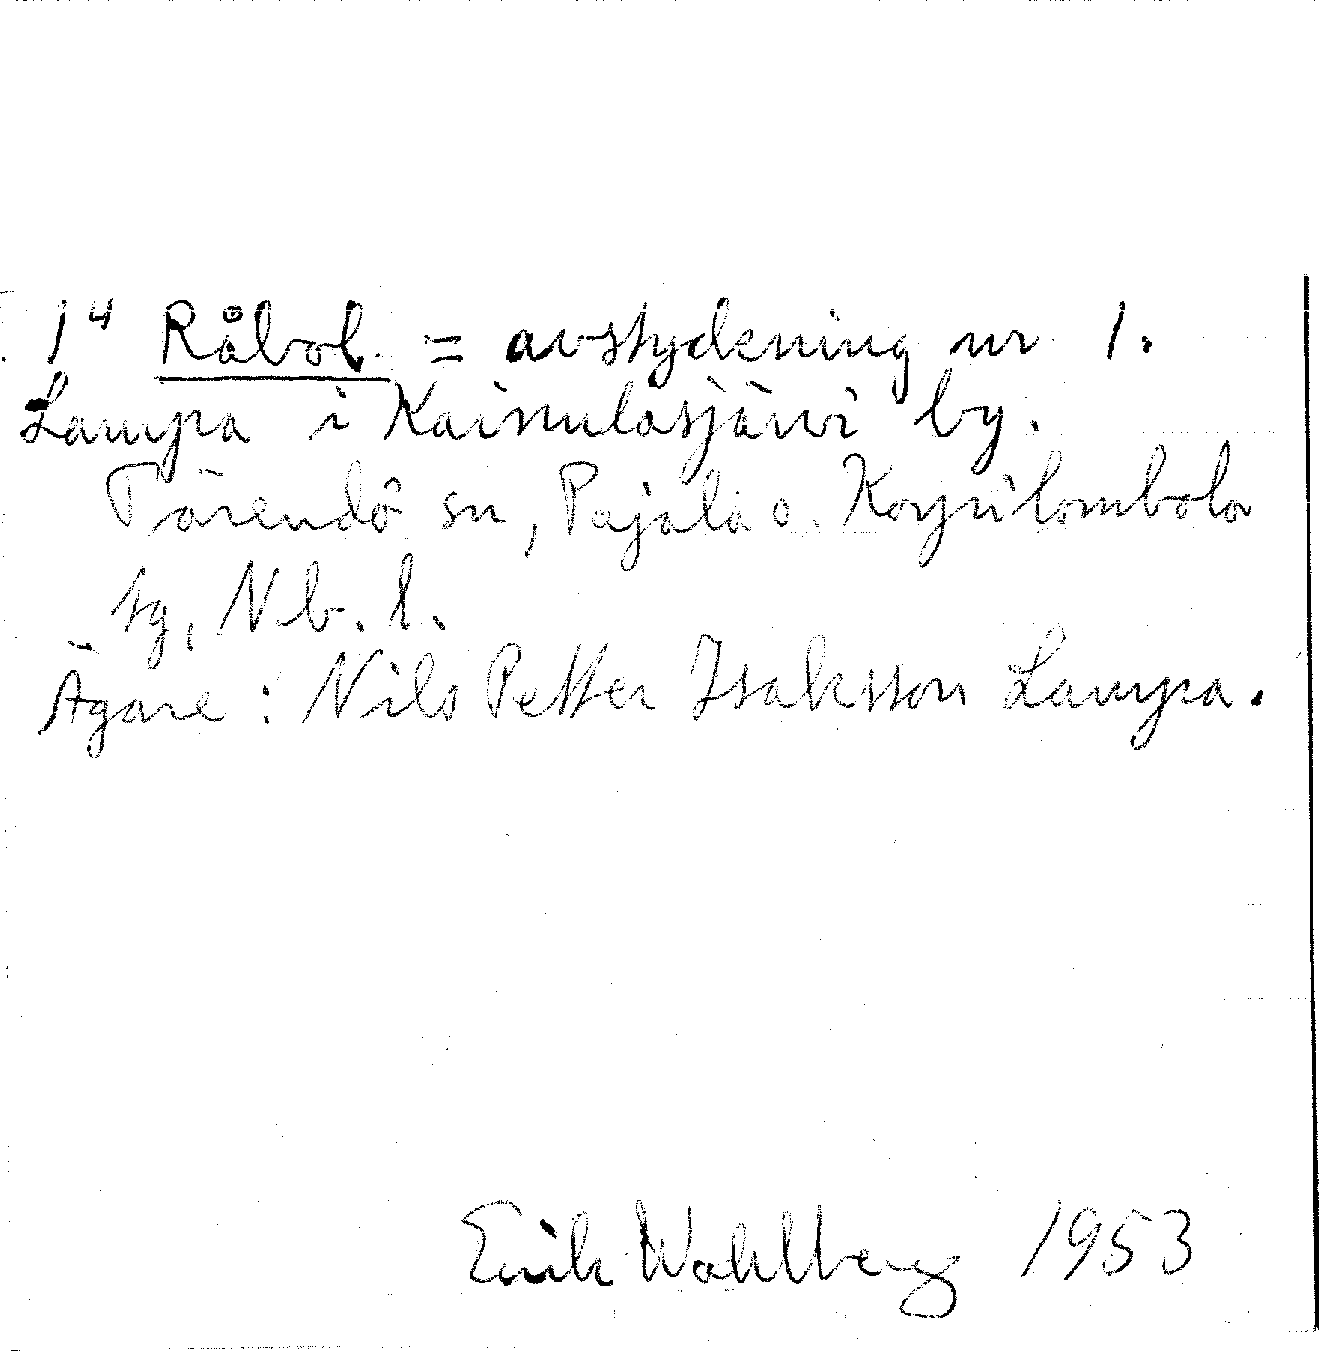 1⁴ Råbol = avstyckning nr 1.
Lampa i Kainulasjärvi by.
Tärendö sn, Pajala o. Korpilombolo
tg, Nb. l.
Ägare: Nils Petter Isaksson Lampa.
Erik Wahlberg 1953